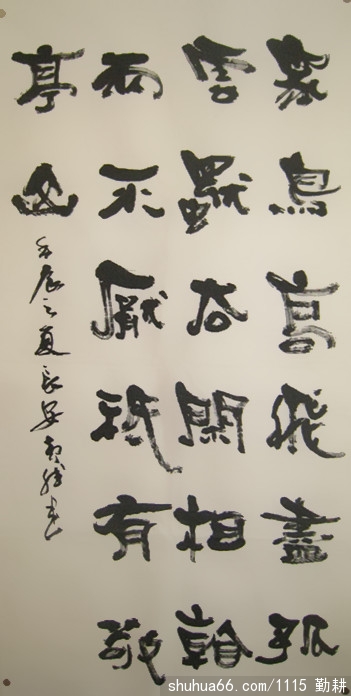 衆鳥高飛盡孤
雲獨去閑相看
兩不厭祇有敬
亭山
壬辰之夏長安勤耕書
shuhua66.com/1115 勤耕